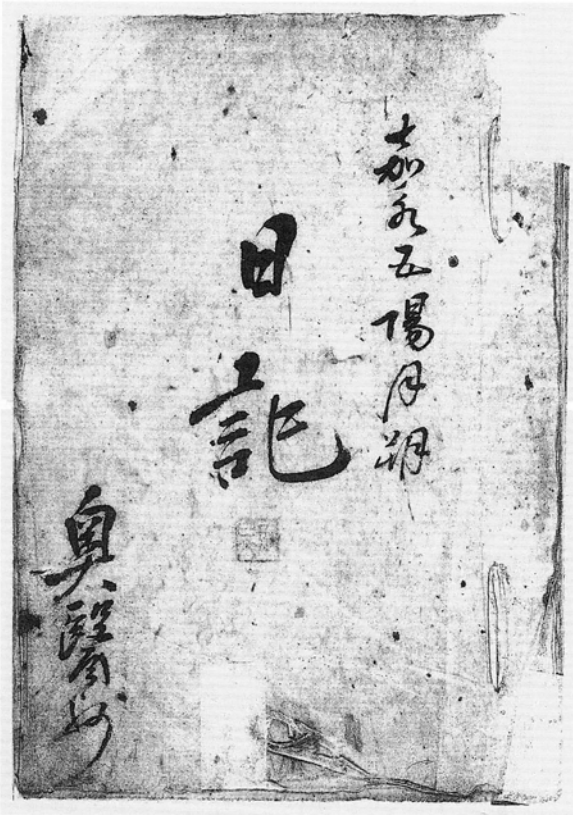 嘉永五陽月朔
日記
奥醫師